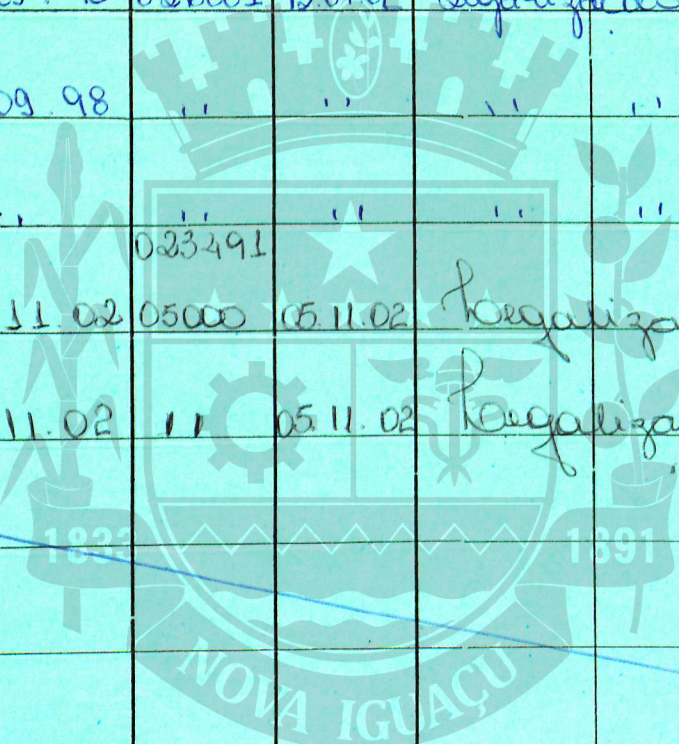 09.98 ,, ,, ,, ,,
,, ,, ,, ,, ,,
023491
11.02 05000 05.11.02 Legaliza
11.02 ,, 05.11.02 Legaliza
1833 1891
NOVA IGUAÇU